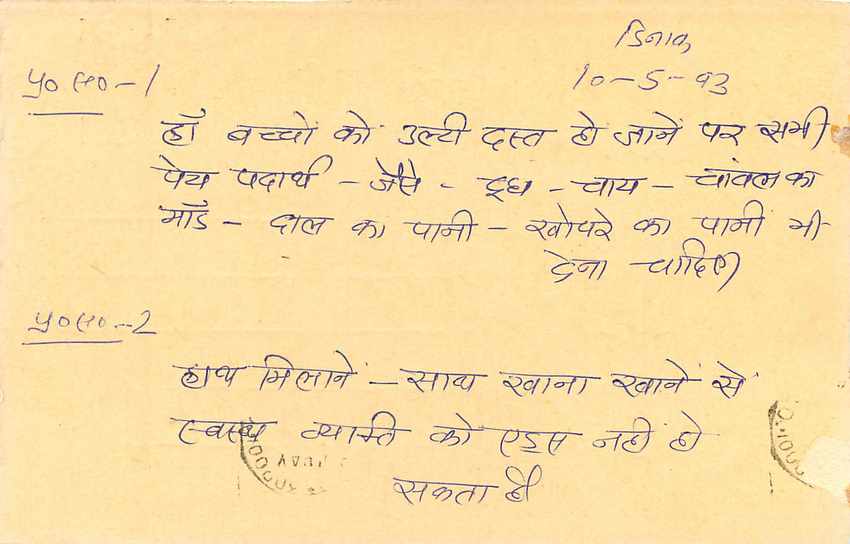 दिनाक
10-5-93
प्र० स०-1
हाँ बच्चों को उल्टी दस्त हो जानें पर सभी
पेय पदार्थ - जैसे - दूध - चाय - चांवल का
माँड - दाल का पानी - खोपरे का पानी भी
देना चाहिए।
प्र० स०-2
हाथ मिलाने - साथ खाना खाने से
स्वस्थ व्यक्ति को एड्स नही हो
सकता है।